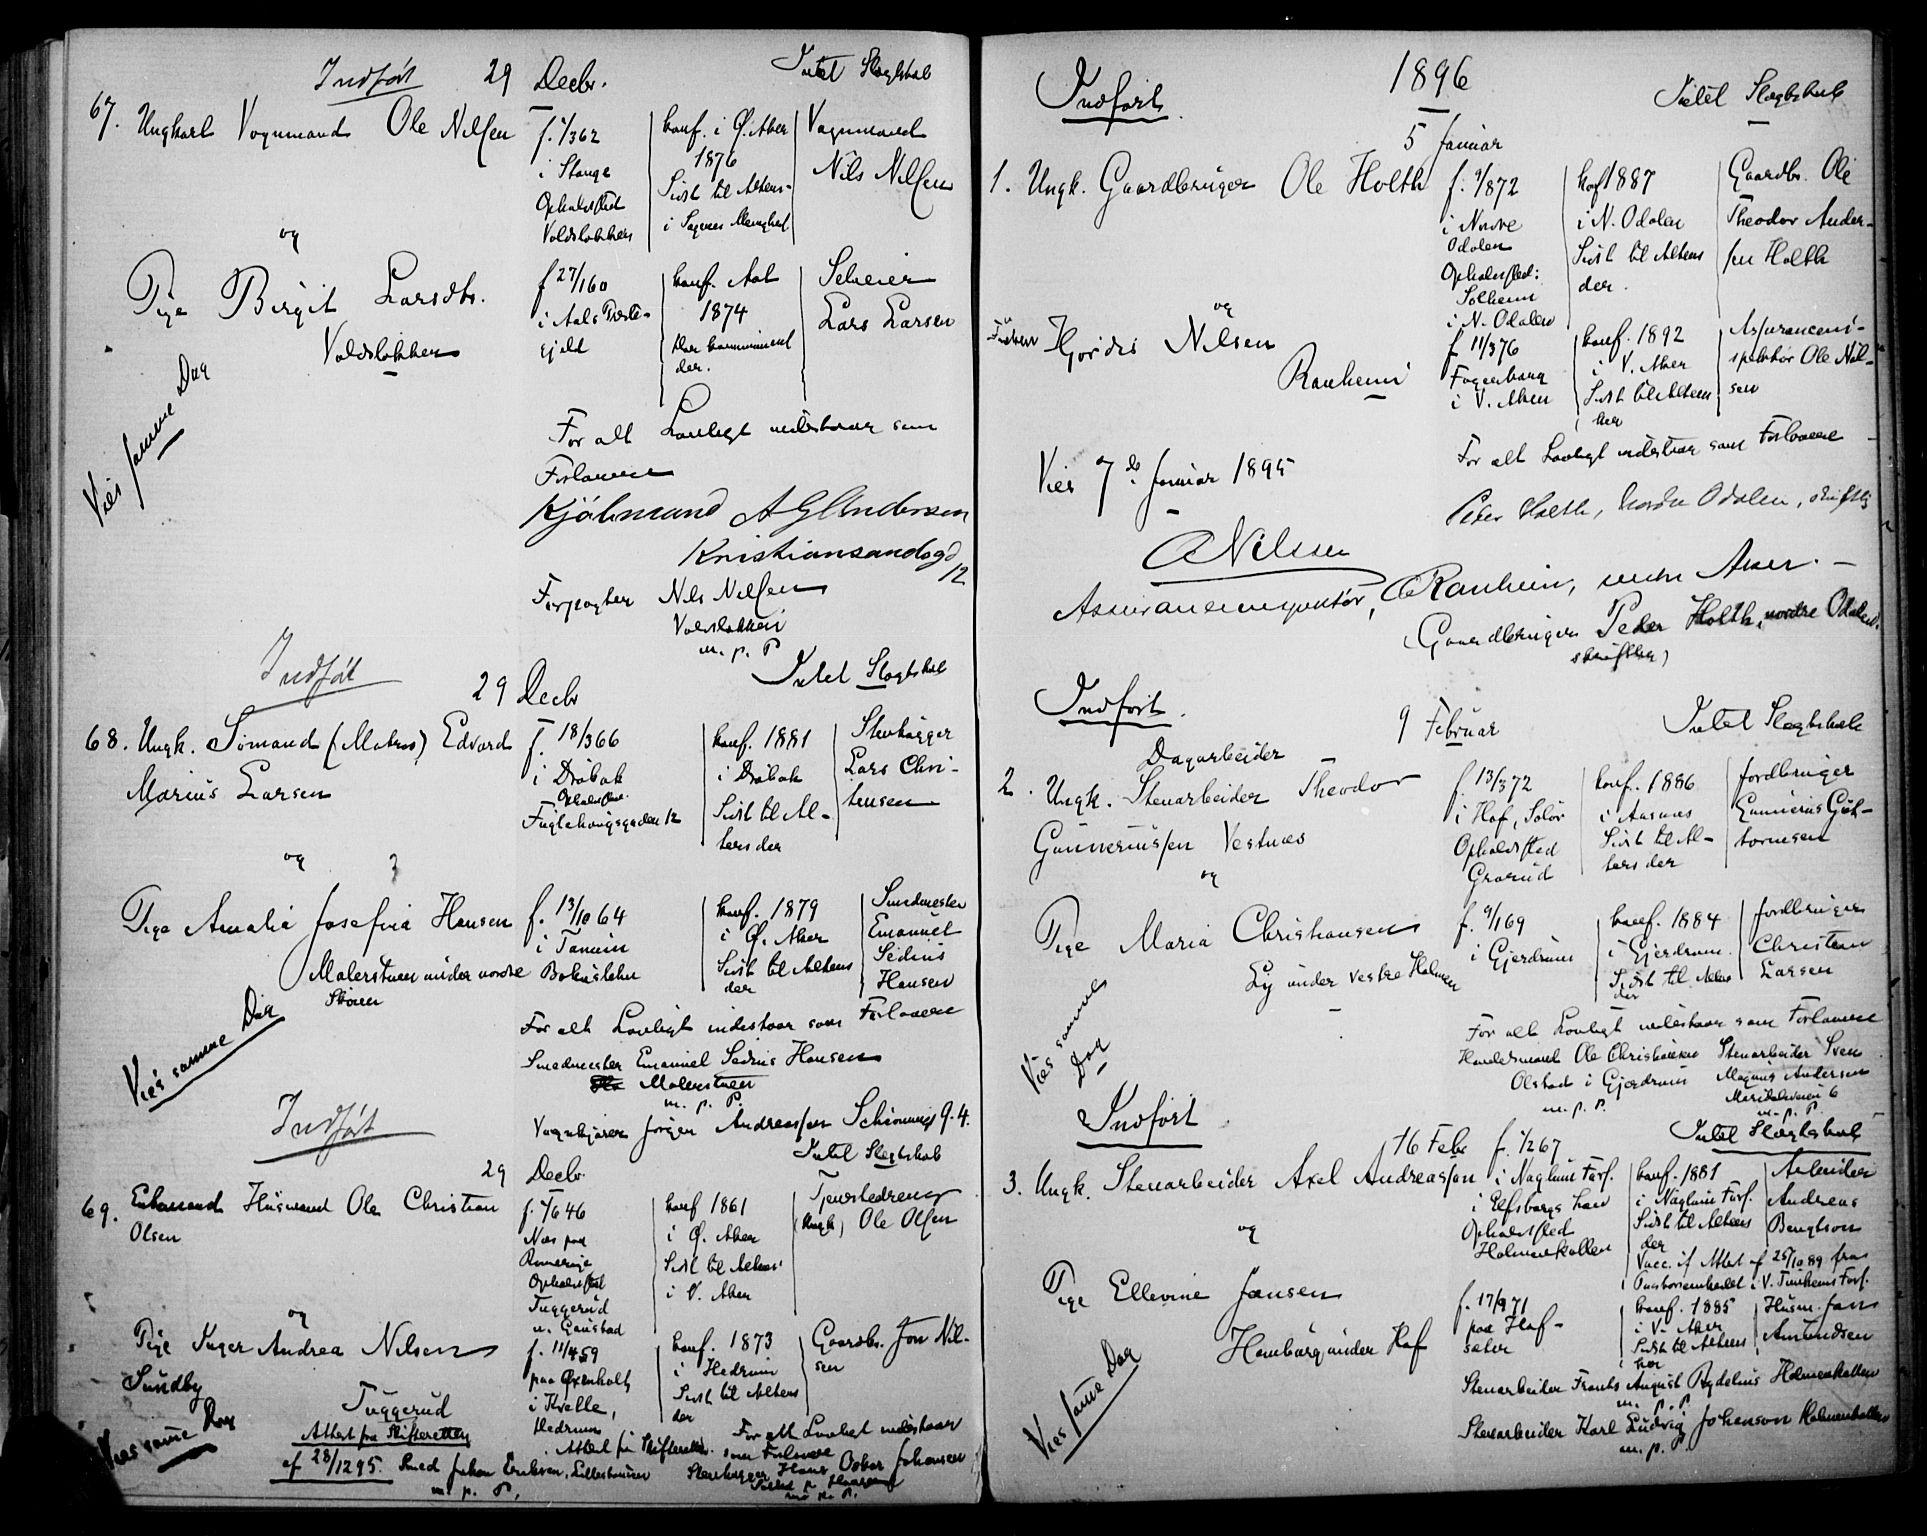 Indført 29 Decbr. Intet Slægtskab
67. Ungkarl Vognmand Ole Nilsen
f. 1/3 62
i Stange
Opholdssted
Voldsløkken
konf. i Ø. Aker
1876
Sidst til Altens
i Sagenes Menighed
Vognmand
Nils Nilsen
og
Pige Birgit Larsdtr.
Voldsløkken
f 27/1 60
i Aals Præste-
gjeld
konf. Aal
1874
der.
Lars Larsen
Viet samme Dag
For alt Lovligt indestaar som
Forlovere
Kjøbmand A G Andersen
Kristiansandsgd
12
Forpagter Nils Nilsen
Voldsløkken
m. p. P
Indført
29 Decbr
Intet Slægtskab
68. Ungk. Sømand (Matros) Edvard
Marius Larsen
f. 18/3 66
i Drøbak
Opholdssted
Fuglehaugsgaden 12
konf. 1881
i Drøbak
Sidst til Al-
ters der
Stenhugger
Lars Chri-
stensen
og
Pige Amalia Josefina Hansen
Malerstuen under nordre
Skøien
f. 13/10 64
i Tanum
Bohuslehn
konf. 1879
i Ø. Aker
Sidst til Altens
der
Smedmester
Emanuel
Sedius
Hansen
Viet samme Dag
For alt Lovligt indestaar som Forlovere
Smedmester Emanuel Sedius Hansen
Malerstuen
m. p. P.
Vognkjører Jørgen Andreassen Schønnings g. 4.
Indført
Intet Slegtskab
29 Decbr
69. Enkemand Husmand Ole Christian
Olsen
f. 7/6 46
Næs paa
Romerige
Opholdssted
Tuggerud
u. Gaustad
konf 1861
i Ø. Aker
Sidst til Altens
i V. Aker
Tjenstedreng
(Ungk) Ole Olsen
og
Pige Inger Andrea Nilsen
Sundby
Tuggerud
f. 11/4 59
paa Øxenholt
i Kvelle,
Hedrum
konf. 1873
i Hedrum
Sidst til Altens
der
Gaardbr. Jon Nil-
sen
Viet samme Dag
Attest fra Skifteretten
af 28/12 95.
Attest fra Skifteretten.
For alt Lovligt indestaar
som Forlovere
Smed Johan Eriksen, Lillestrømmen
m. p. P.
Stenhugger Hans Oskar Johansen
m. p. P.
1896
Indført.
Intet Slægtskab
5 Januar
1. Ungk. Gaardbruger Ole Holth
f. 9/8 72
i Nordre
Odalen
Opholdssted:
Solheim
i N. Odalen
konf 1887
i N. Odalen
Sidst til Altens
der.
Gaardbr. Ole
Theodor Ander-
sen Holth
og
Frøken Hjørdis Nilsen
Ranheim
f 11/3 76
Fagerborg
i V. Aker
konf. 1892
i V. Aker
Sidst til Altens
her
Assuranceni-
spektør Ole Nil-
sen
For alt Lovligt indestaar som Forlovere
Viet 7de Januar 1895
Peder Holth, Nordre Odalen, skriftlig
O Nilssen
Assuranceinspektør, Ranheim, vestre Aker.
(Gaardbruger Peder Holth, nordre Odalen.
skriftlig)
Indført.
9 Februar
Intet Slægtskab
Dagarbeider
2. Ungk. Stenarbeider Theodor
Gunneriussen Vestnæs
f. 13/3 72
i Hof, Solør
Opholdssted
Grorud
konf. 1886
i Aasnæs
Sidst til Al-
ters der
Jordbruger
Gunnerius Gut-
tormsen
og
Pige Maria Christiansen
Ly under vestre Holmen
f. 9/1 69
i Gjerdrum
konf. 1884
i Gjerdrum.
Sidst til Alters
der
Jordbruger
Christian
Larsen
Viet samme
Dag
For alt Lovligt indestaar som Forlovere
Handelsmand Ole Christiansen
Olstad i Gjerdrum
m. p. P.
Stenarbeider Sven
Magnus Andersen
Maridalsveien 6
m. p. P.
Indført
16 Febr
Intet Slægtskab
3. Ungk. Stenarbeider Axel Andreassen
f. 1/2 67
i Naglum Fors.
i Elfsborgs Län
Opholdssted
Holmenkollen
konf. 1881
i Naglum Fors.
Sidst til Altens
der
Arbeider
Andreas
Bengtson
Vacc. if Attest af 25/10 89 fra
Pastorembedet i V. Tunhems Fors.
og
Pige Ellevine Jansen
Homborg under Hof
f. 17/9 71
paa Hof-
sæter
konf. 1885
i V. Aker
Sidst til Altens
her
Husm. Jan
Amundsen
Viet samme Dag
Stenarbeider Frants August Rydelius Holmenkollen
m. p. P.
Stenarbeider Karl Ludvig Johanson Holmenkollen
m. p. P.